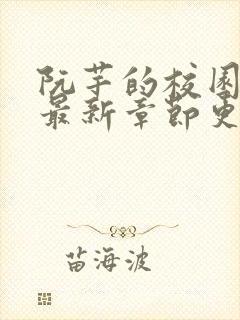 阮芋的校园
最新章节更
苗海波